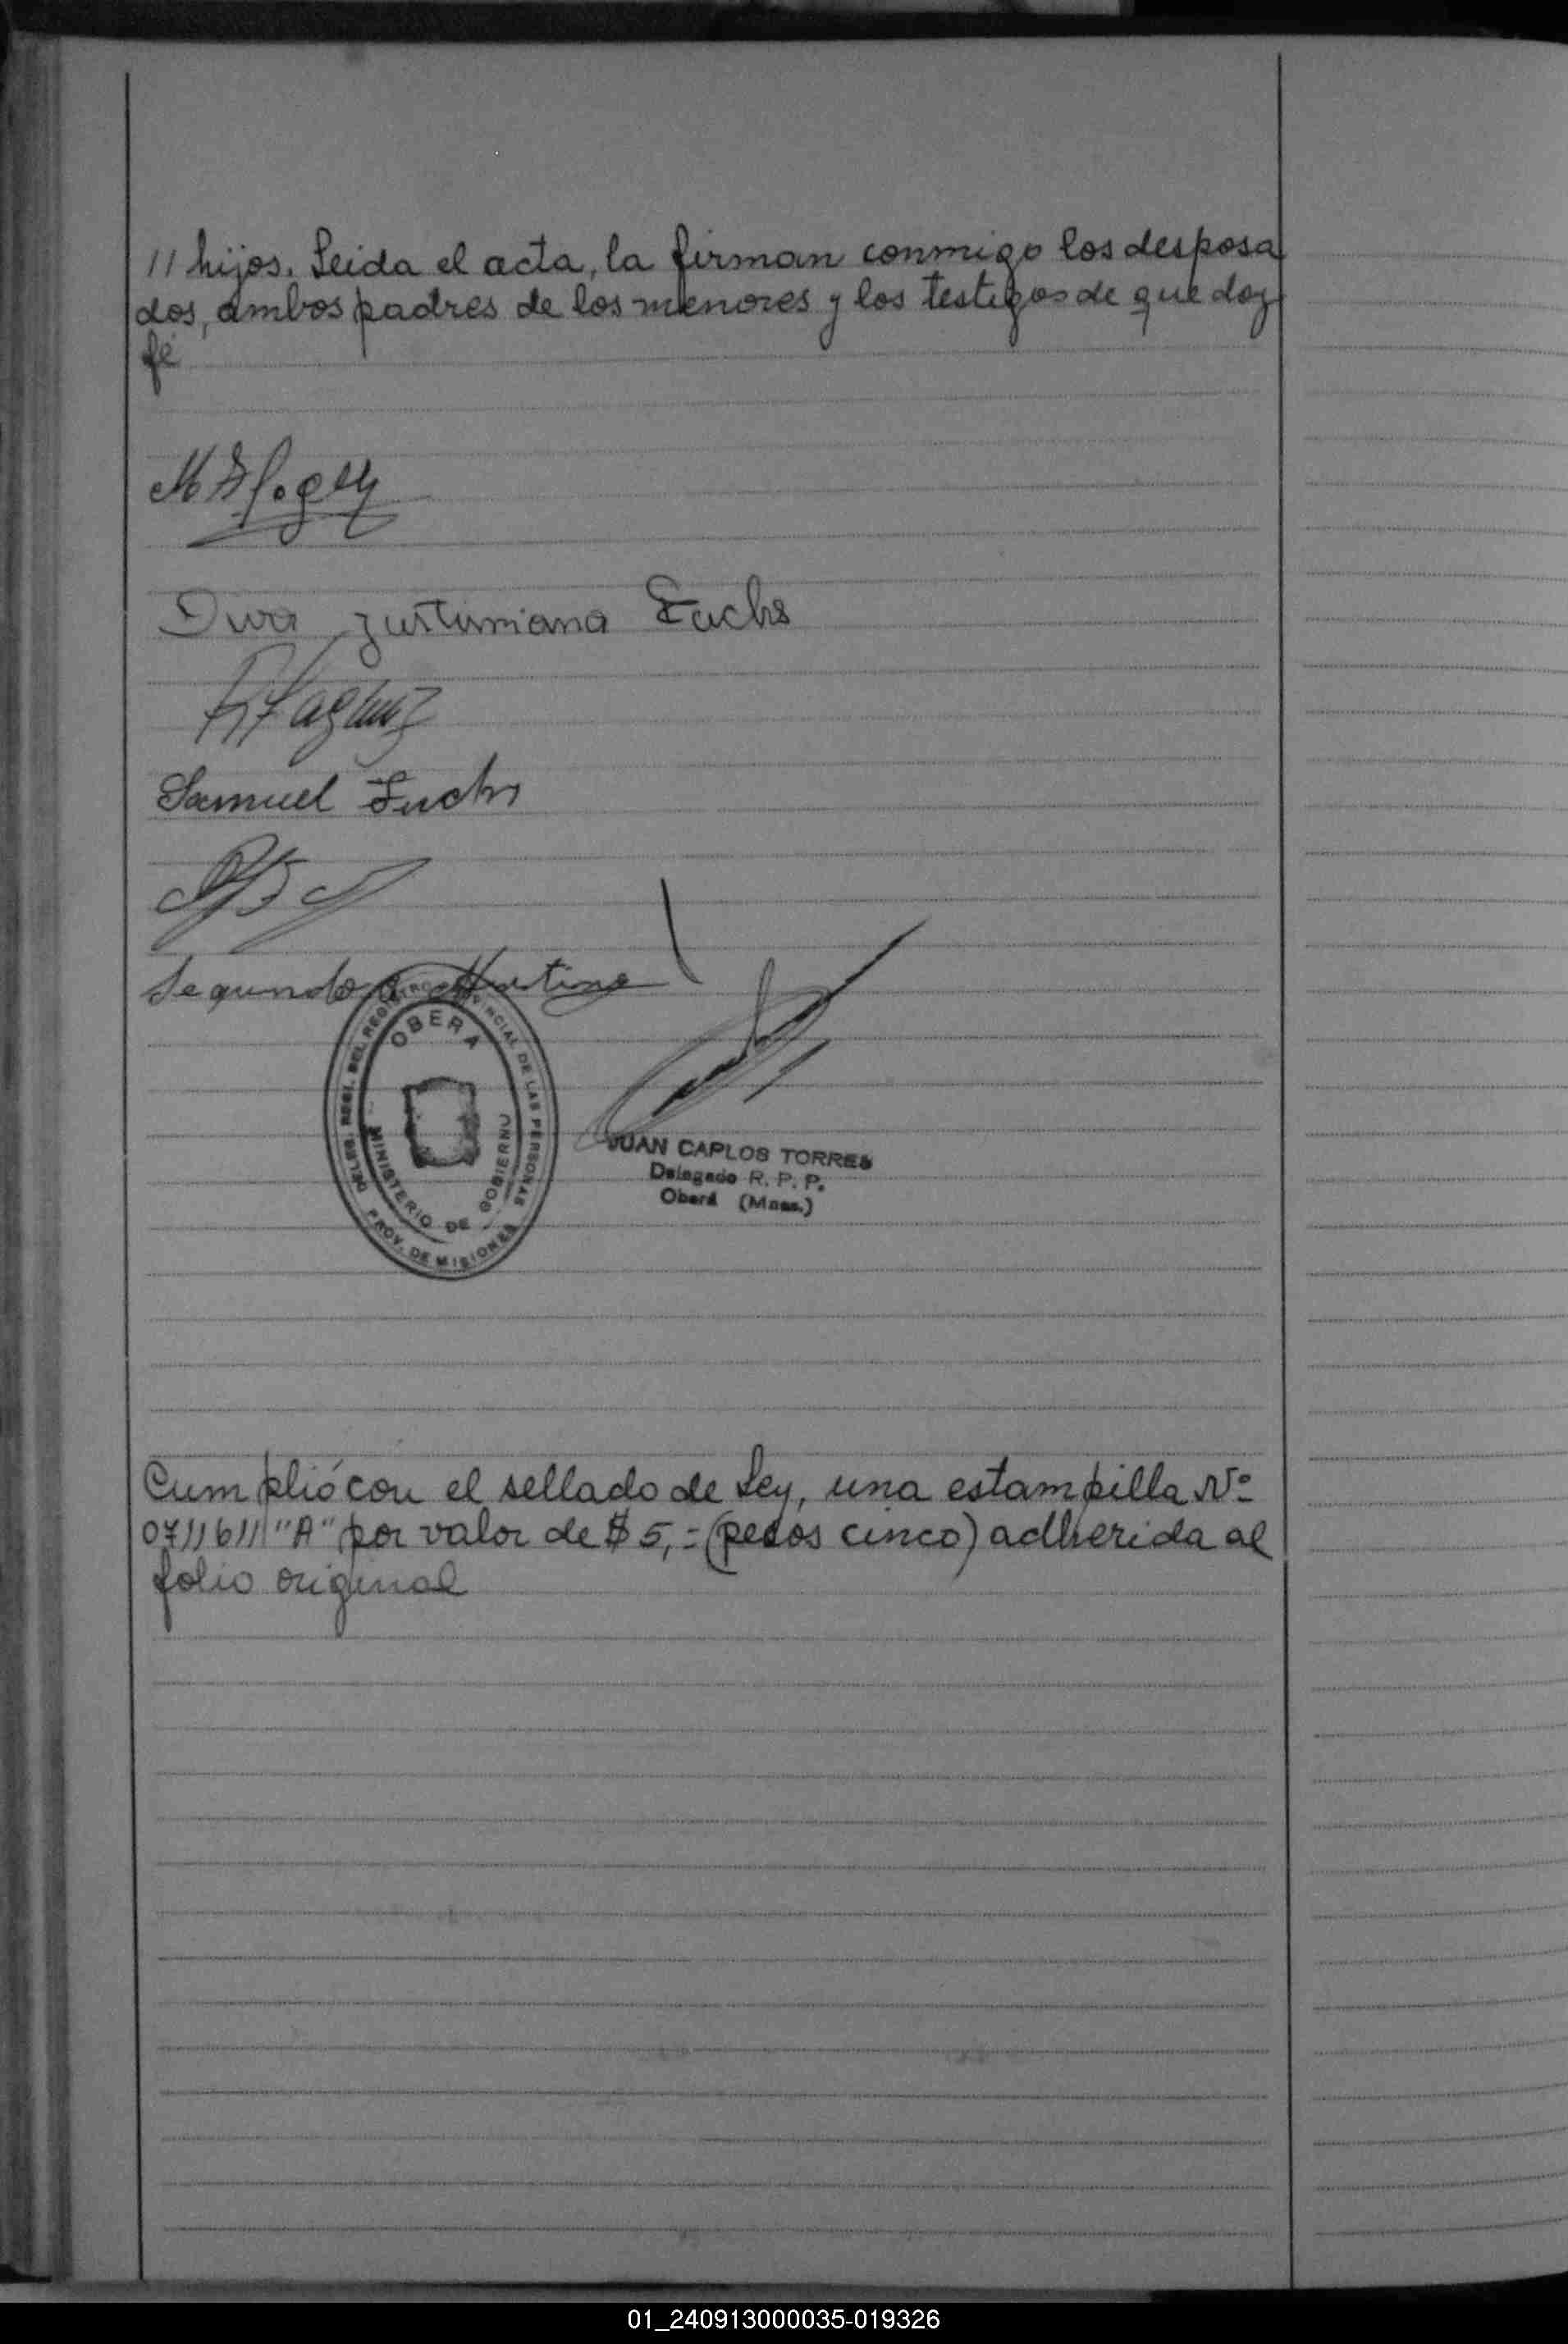 // hijos. Leida el acta, la firman conmigo los desposa
dos, ambos padres de los menores y los testigos de que doy
fé
Diva Justiniana Fuchs
Samuel Fuchs
Segundo
DELEG. REGI. DEL REGISTRO PROVINCIAL DE LAS PERSONAS
OBERA
MINISTERIO DE GOBIERNO
PROV. DE MISIONES
JUAN CARLOS TORRES
Delegado R. P. P.
Oberá (Mnes.)
Cumplió con el sellado de Ley, una estampilla Nº
0711611 "A" por valor de $ 5,= (pesos cinco) adherida al
folio original
01_240913000035-019326